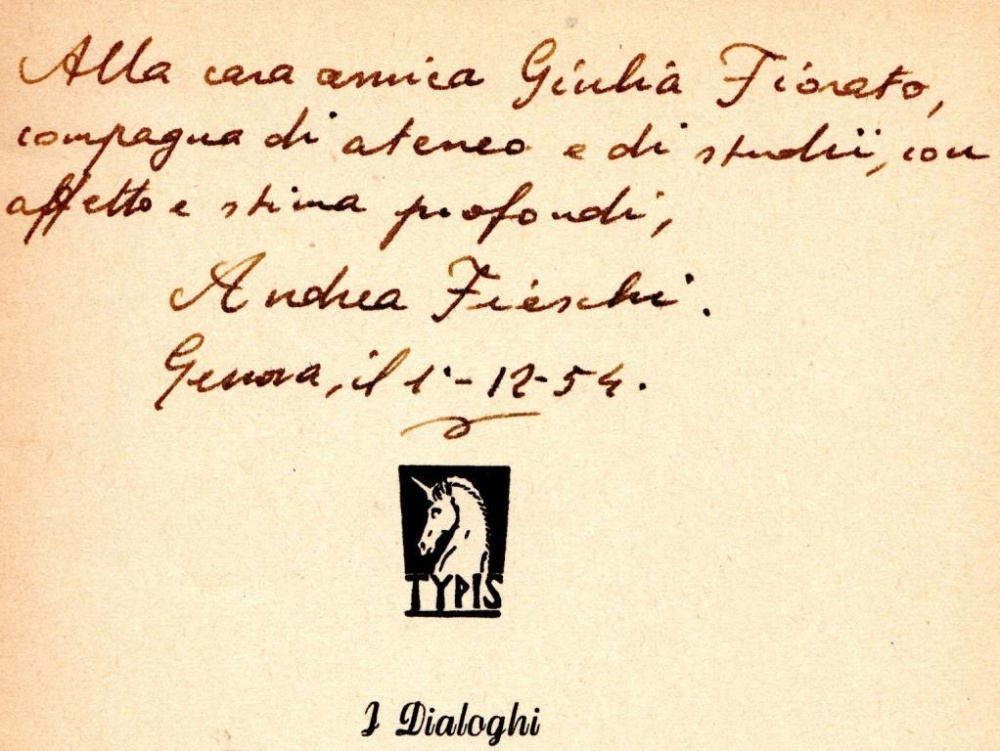 Alla cara amica Giulia Fiorato,
compagna di ateneo e di studii, con
affetto e stima profondi,
Andrea Fieschi.
Genova, il 1°-12-54.
TYPIS
I Dialoghi